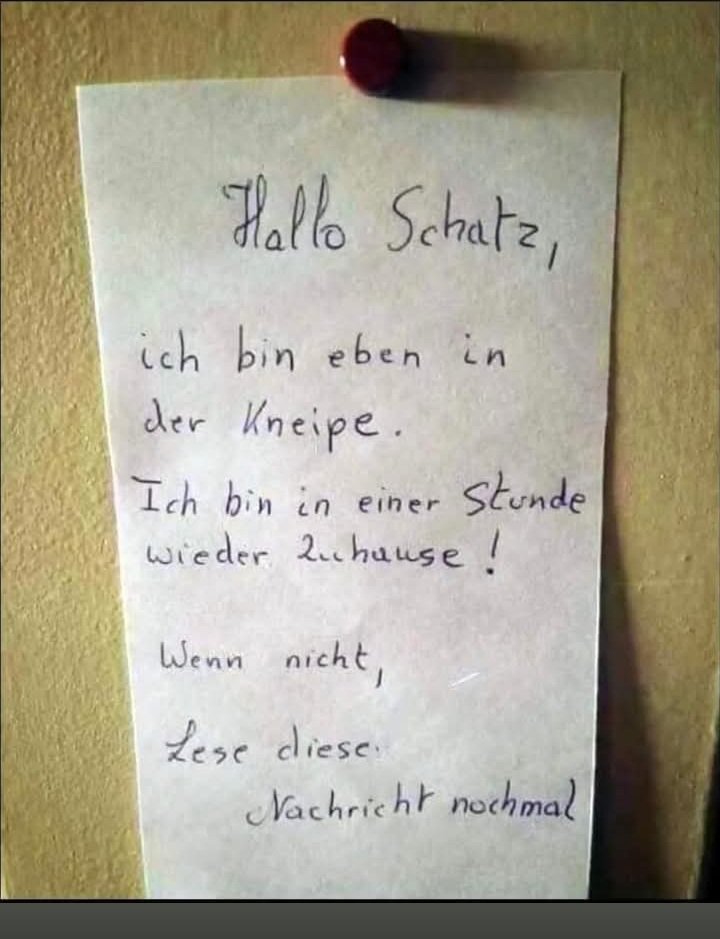 Hallo Schatz,
ich bin eben in
der Kneipe.
Ich bin in einer Stunde
wieder Zuhause!
Wenn nicht,
Lese diese
Nachricht nochmal